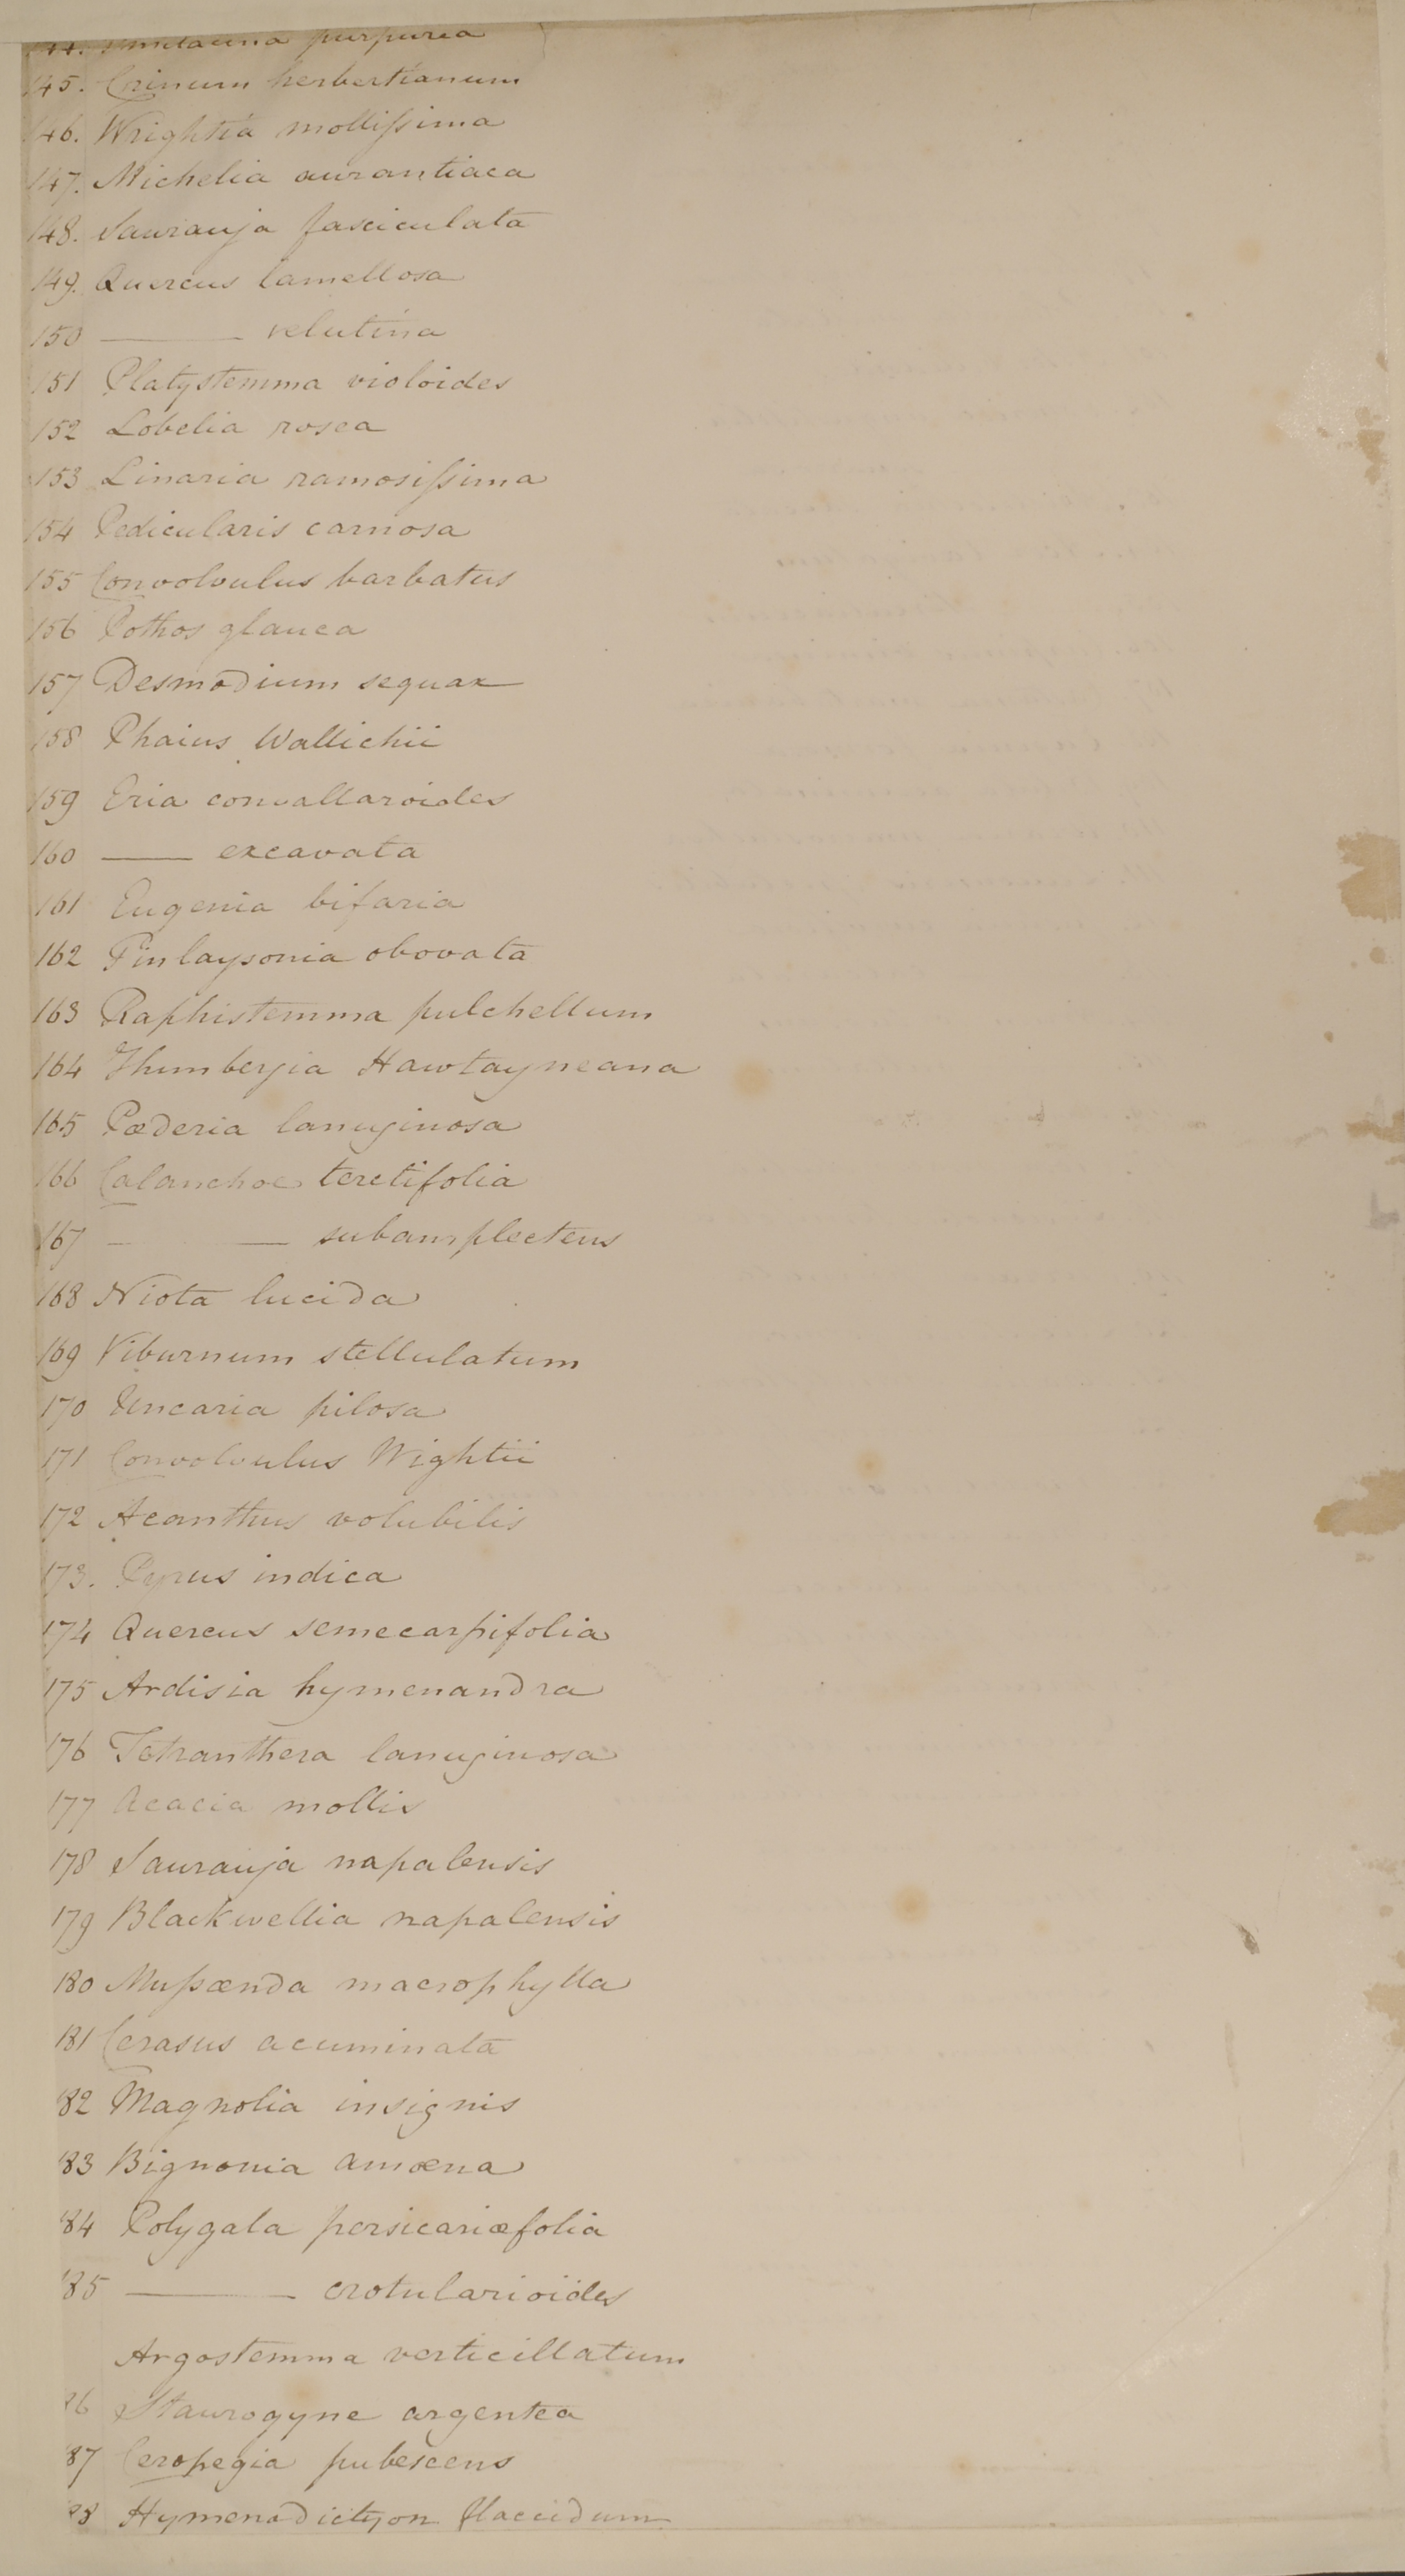 144. Smilacina purpurea
145. Crinum herbertianum
146. Wrightia mollissima
147. Michelia aurantiaca
148. Saurauja fasciculata
149. Quercus lamellosa
150 —— velutina
151 Platystemma violoides
152 Lobelia rosea
153 Linaria ramosissima
154 Pedicularis carnosa
155 Convolvulus barbatus
156 Pothos glauca
157 Desmodium sequax
158 Phaius Wallichii
159 Eria convallaroides
160 —— excavata
161 Eugenia bifaria
162 Finlaysonia obovata
163 Raphistemma pulchellum
164 Thunbergia Hawtayneana
165 Pæderia lanuginosa
166 Calanchoe teretifolia
167 — —— subamplectens
168 Niota lucida
169 Viburnum stellulatum
170 Uncaria pilosa
171 Convolvulus Wightii
172 Acanthus volubilis
173. Pyrus indica
174 Quercus semecarpifolia
175 Ardisia hymenandra
176 Tetranthera lanuginosa
177 Acacia mollis
178 Saurauja napalensis
179 Blackwellia napalensis
180 Mussænda macrophylla
181 Cerasus acuminata
182 Magnolia insignis
183 Bignonia amœna
184 Polygala persicariæfolia
185 —— crotularioides
Argostemma verticillatum
86 Staurogyne argentea
87 Ceropegia pubescens
88 Hymenodictyon flaccidum